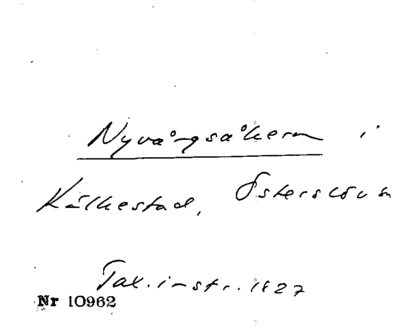 Nyvångsåkern i
Kälkestad, Österslövs sn
Tax.instr. 1827
Nr 10962